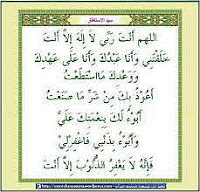 سيد الاستغفار
اللهم أَنْتَ رَبِّي لَا إِلَهَ إِلَّا أَنْتَ
خَلَقْتَنِي وَأَنَا عَبْدُكَ وَأَنَا عَلَى عَهْدِكَ
وَوَعْدِكَ مَا اسْتَطَعْتُ
أَعُوذُ بِكَ مِنْ شَرِّ مَا صَنَعْتُ
أَبُوءُ لَكَ بِنِعْمَتِكَ عَلَيَّ
وَأَبُوءُ بِذَنْبِي فَاغْفِرْلِي
فَإِنَّهُ لَا يَغْفِرُ الذُّنُوبَ إِلَّا أَنْتَ